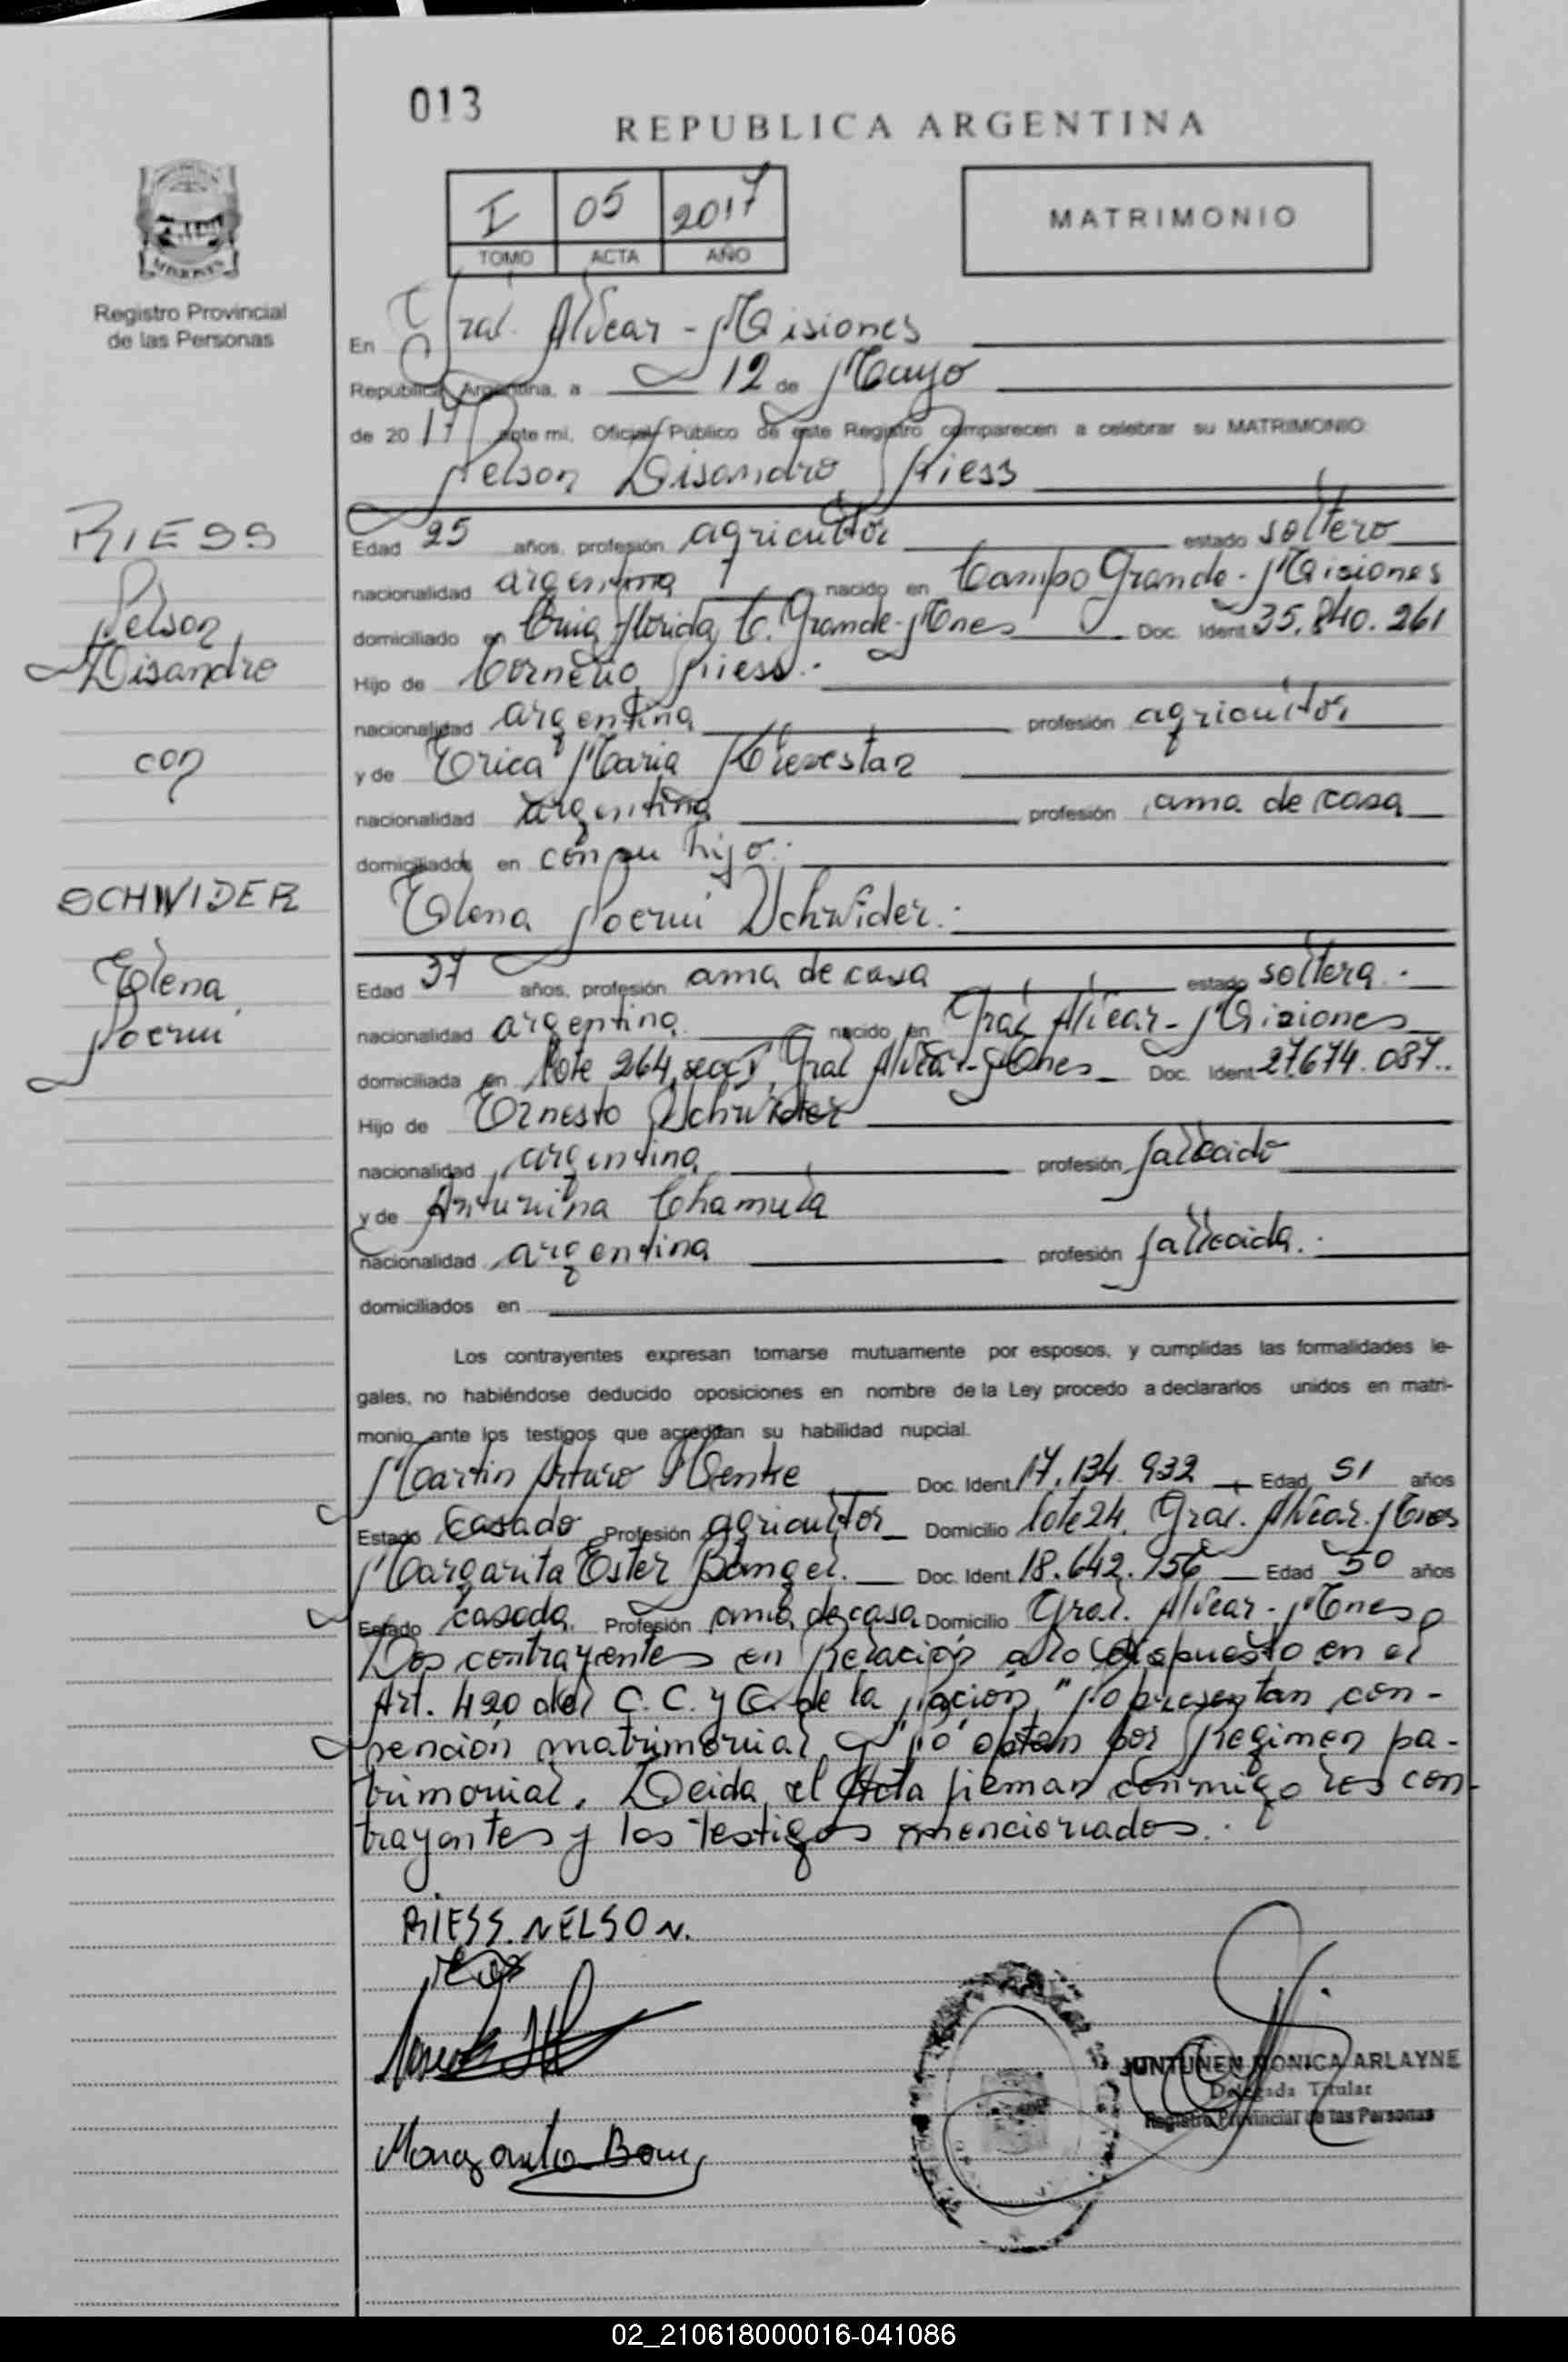 013
REPUBLICA ARGENTINA
I 05 2017
TOMO ACTA AÑO
MATRIMONIO
Registro Provincial
de las Personas
En Gral. Alvear - Misiones
República Argentina, a 12 de Mayo
de 2017 ante mi, Oficial Público de este Registro comparecen a celebrar su MATRIMONIO:
Nelson Lisandro Riess
RIESS
Nelson
Lisandro
con
SCHWIDER
Elena
Noemi
Edad 25 años, profesión agricultor estado soltero
nacionalidad argentina nacido en Campo Grande - Misiones
domiciliado en Cnia Florida, C. Grande - Mnes Doc. Ident 35.840.261
Hijo de Cornelio Riess.-
nacionalidad argentina profesión agricultor
y de Erica Maria
nacionalidad argentina profesión ama de casa
domiciliados en con su hijo.-
Elena Noemi Schwider.-
Edad 37 años, profesión ama de casa estado soltera.-
nacionalidad argentina nacido en Gral Alvear - Misiones
domiciliada en Lote 264, secc I, Gral Alvear - Mnes Doc. Ident 27.674.087..
Hijo de Ernesto Schwider
nacionalidad argentina profesión fallecido
y de Antunina Chamula
nacionalidad argentina profesión fallecida.-
domiciliados en
Los contrayentes expresan tomarse mutuamente por esposos, y cumplidas las formalidades le-
gales, no habiéndose deducido oposiciones en nombre de la Ley procedo a declararlos unidos en matri-
monio ante los testigos que acreditan su habilidad nupcial.
Martin Arturo Doc. Ident 17.134.932 Edad 51 años
Estado casado Profesión agricultor Domicilio Lote 24, Gral. Alvear. Mnes
Margarita Ester Doc. Ident 18.642.156 Edad 50 años
Estado casada Profesión ama de casa Domicilio Gral. Alvear - Mnes
Los contrayentes en relación a lo dispuesto en el
Art. 420 del C.C. y C. de la Nacion, "No presentan con-
vencion matrimonial y "No" optan por regimen pa-
trimonial. Leida el Acta firman conmigo los con-
trayentes y los testigos mencionados.-
RIESS. NELSON.
Margarita
JUNTUNEN MONICA ARLAYNE
Delegada Titular
Registro Provincial de las Personas
02_210618000016-041086